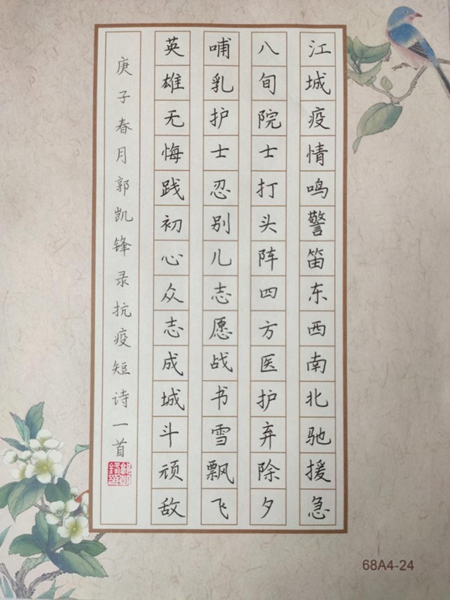 江城疫情鸣警笛东西南北驰援急
八旬院士打头阵四方医护弃除夕
哺乳护士忍别儿志愿战书雪飘飞
英雄无悔践初心众志成城斗顽敌
庚子春月郭凯锋录抗疫短诗一首
68A4-24